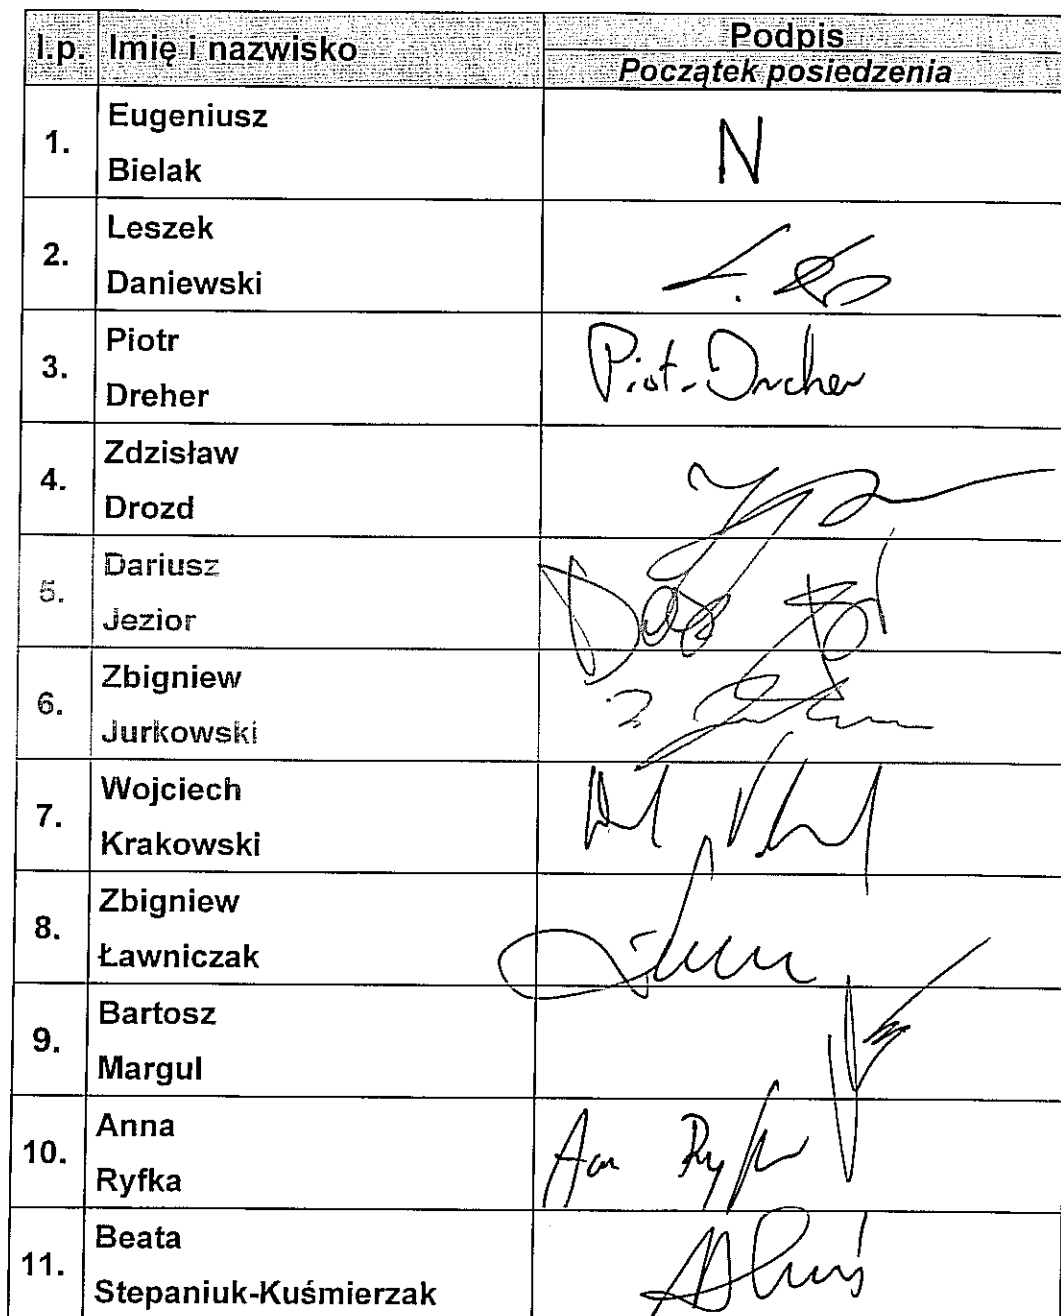 l.p. Imię i nazwisko Podpis
Początek posiedzenia
1. Eugeniusz
Bielak
N
2. Leszek
Daniewski
3. Piotr
Dreher
Piotr Dreher
4. Zdzisław
Drozd
5. Dariusz
Jezior
6. Zbigniew
Jurkowski
7. Wojciech
Krakowski
8. Zbigniew
Ławniczak
9. Bartosz
Margul
10. Anna
Ryfka
11. Beata
Stepaniuk-Kuśmierzak